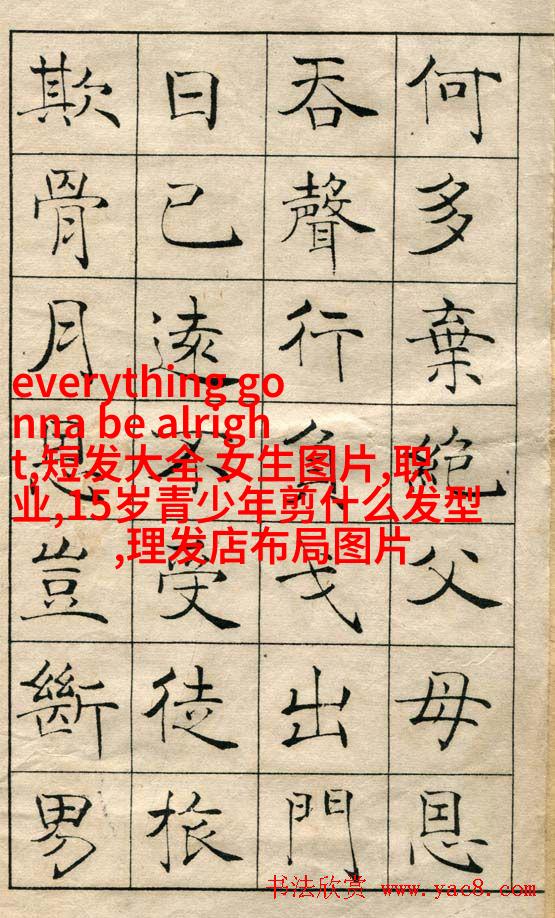 何多棄絕父母恩
吞聲行負戈出門
日已遠不受徒旅
欺骨月恩豈斷男
everything go
nna be alrigh
t,短发大全 女生图片,职
业,15岁青少年剪什么发型
,理发店布局图片
书法欣赏 www.yac8.com